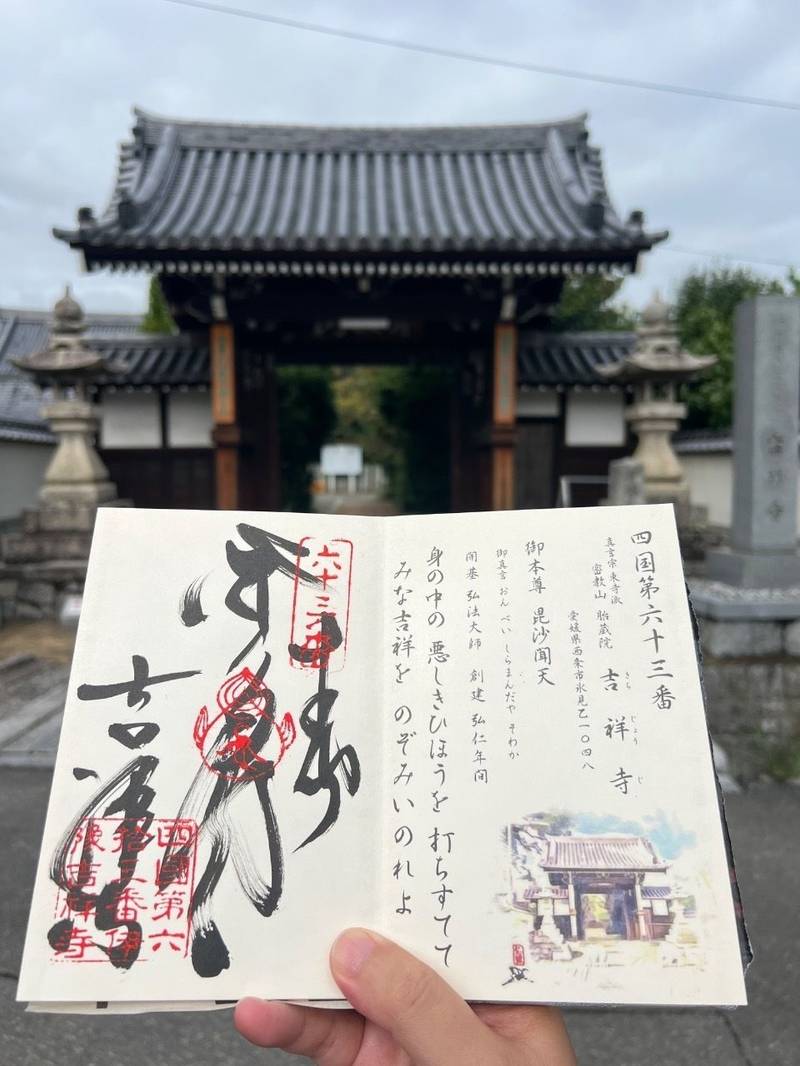 四国第六十三番
真言宗 東寺派
密教山 胎蔵院 吉祥寺
きち じょう じ
愛媛県西条市氷見乙一〇四八
御本尊 毘沙聞天
御真言 おん べい しらまんだや そわか
開基 弘法大師 創建 弘仁年間
身の中の 悪しきひほうを 打ちすてて
みな吉祥を のぞみいのれよ
六十三番
吉祥寺
四國第六
拾三番伊
豫吉祥寺
吉祥寺